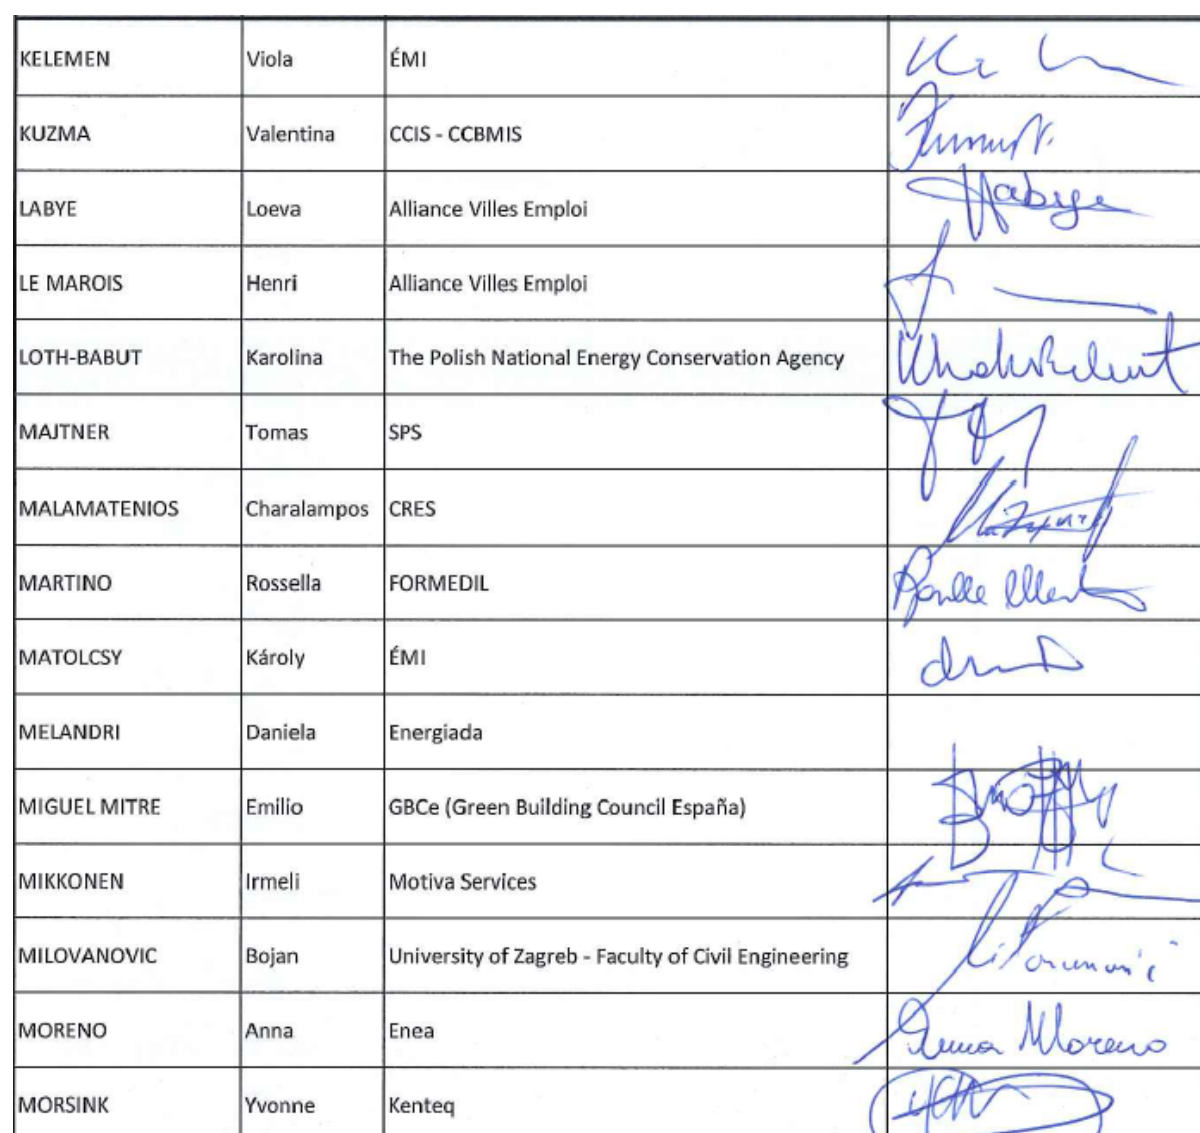 KELEMEN Viola ÉMI
KUZMA Valentina CCIS - CCBMIS
LABYE Loeva Alliance Villes Emploi Labye
LE MAROIS Henri Alliance Villes Emploi
LOTH-BABUT Karolina The Polish National Energy Conservation Agency
MAJTNER Tomas SPS
MALAMATENIOS Charalampos CRES
MARTINO Rossella FORMEDIL
MATOLCSY Károly ÉMI
MELANDRI Daniela Energiada
MIGUEL MITRE Emilio GBCe (Green Building Council España)
MIKKONEN Irmeli Motiva Services
MILOVANOVIC Bojan University of Zagreb - Faculty of Civil Engineering
MORENO Anna Enea Anna Moreno
MORSINK Yvonne Kenteq